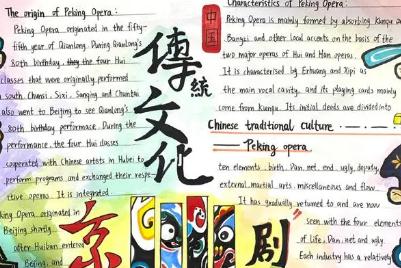 The origin of Peking Opera:
Peking Opera originated in the fifty-
fifth year of Qianlong. During Qianlong's
80th birthday, they the four Hui
classes that were originally performed
in south, Chunsi, Sixi, Sanqing and Chuntai
also went to Beijing to see Qianlong's
80th birthday performace. During the
performance, the four Hui classes
cooperated with Chinese artists in Hubei to
perform programs and exchanged their respe-
ctive opera. It is integrated
king Opera, originated in
Beijing shortly
after Huiban entered
Beijing, and
中国
傳統
文化
京
剧
Characteristics of Peking Opera:
Peking Opera is mainly formed by absorbing Kunqu or
Bangzi and other local accents on the basis of the
two major operas of Hui and Han operas.
It is characterised by Erhuang and Xipi as
the main vocal cavity, and its playing cards mainly
come from Kunqu. Its initial deeds are divided into
Chinese traditional culture
Peking opera
ten elements, birth, Dan, net, end, ugly, deputy,
external, martial arts, miscellaneous and flow
It has gradually returned to and are now
seen with the four elements
of life, Dan, net and ugly
Each industry has a relatively